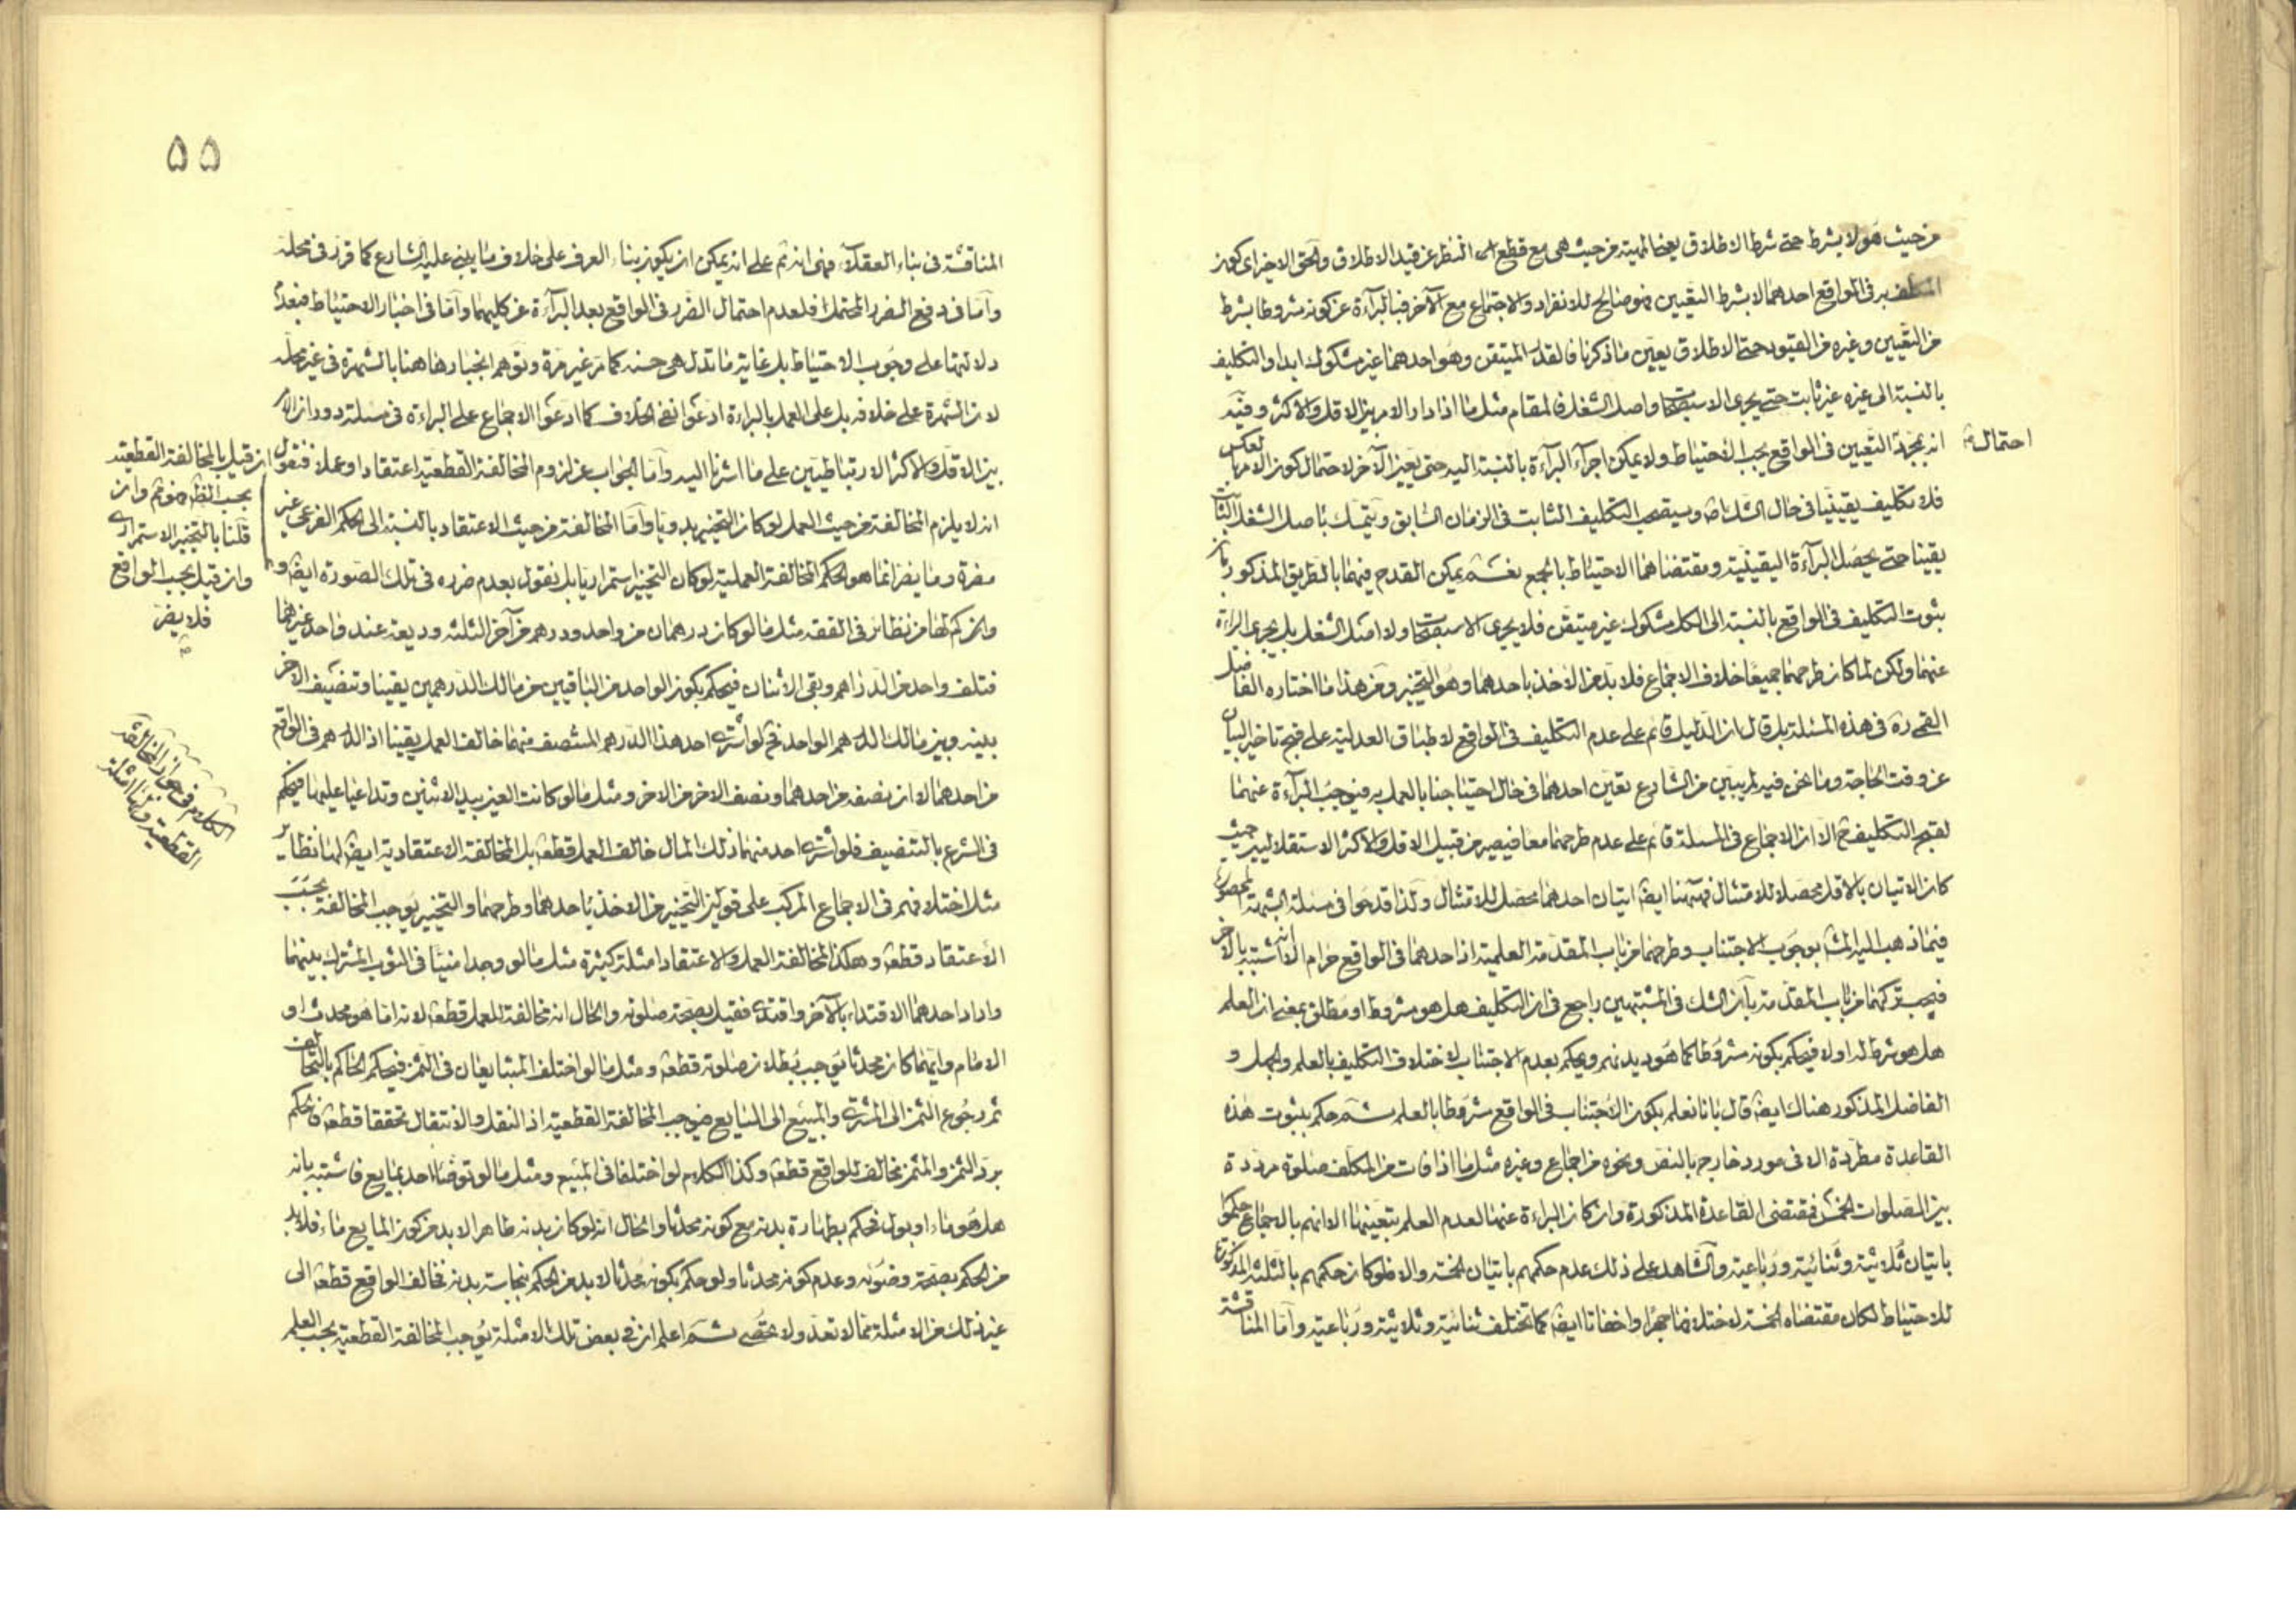 من حيث هو لا بشرط حتى شرط الاطلاق يعنى المهية من حيث هى مع قطع النظر عن قيد الاطلاق والحق الاخير اى كون
به فى الواقع احدهما لا بشرط التعيين فهو صالح للانفراد والاجتماع مع الآخر فبالبرآءة عن كونه مشروطا بشرط
من التعيين وغيره من القيود حتى الاطلاق يعين ما ذكرنا فالقدر المتيقن وهو احدهما غير مشكوك ابدا والتكليف
بالنسبة الى غيره غير ثابت حتى يجرى الاستصحاب واصل الشغل فالمقام مثل ما اذا دار الامر بين الاقل والاكثر وفيه
احتمال
انه بمجرد التعيين فى الواقع يجب الاحتياط ولا يمكن اجرآء البرآءة بالنسبة اليه حتى يعين الآخر لاحتمال كون الامر بالعكس
فلا تكليف يقينيا فى حال الشك ويستصحب التكليف الثابت فى الزمان السابق ويتمسك باصل الشغل الثابت
يقينا حتى يحصل البرآءة اليقينية ومقتضاهما الاحتياط بالجمع نعم يمكن القدح فيهما بالطريق المذكور بان
ثبوت التكليف فى الواقع بالنسبة الى الكل مشكوك غير متيقن فلا يجرى الاستصحاب ولا اصل الشغل بل يجرى البراءة
عنهما ولكن لما كان طرحهما جميعا خلاف الاجماع فلا بد من الاخذ باحدهما وهو التخيير ومن هذا ما اختاره الفاضل
القمى ره فى هذه المسئلة بل قال ان الدليل قائم على عدم التكليف فى الواقع لاطباق العدلية على قبح تاخير البيان
عن وقت الحاجة وما نحن فيه لم يبين من الشارع تعين احدهما فى حال احتياجنا بالعمل به فيوجب البرآءة عنهما
لقبح التكليف ح الا ان الاجماع فى المسئلة قائم على عدم طرحهما معا فيصير من قبيل الاقل والاكثر الاستقلاليين حيث
كان الاتيان بالاقل محصلا للامتثال فههنا ايضا اتيان احدهما محصل للامتثال وكذا قدحوا فى مسئلة الشبهة المحصورة
فيما ذهب اليه المش بوجوب الاجتناب وطرحهما من باب المقدمة العلمية اذ احدهما فى الواقع حرام الا انه اشتبه بالآخر
فيجب تركهما من باب المقدمة بآن الشك فى المشتبهين راجع فى ان التكليف هل هو مشروط او مطلق بمعنى ان العلم
هل هو شرط له اولا فيحكم بكونه مشروطا كما هو ديدنهم ويحكم بعدم الاجتناب لاختلاف التكليف بالعلم والجهل و
الفاضل المذكور هناك ايضا قال بانا نعلم بكون الاجتناب فى الواقع مشروطا بالعلم ثم حكم بثبوت هذه
القاعدة مطردة الا فى مورد خارج بالنص ونحوه من اجماع وغيره مثل ما اذا فات من المكلف صلوة مرددة
بين الصلوات الخمس فمقتضى القاعدة المذكورة وان كان البراءة عنها لعدم العلم بتعيينها الا انهم بالاجماع حكموا
باتيان ثلاثية وثنائية ورباعية والشاهد على ذلك عدم حكمهم باتيان الخمسة والا فلو كان حكمهم بالثلثة المذكورة
للاحتياط لكان مقتضاه الخمسة لاختلافها جهرا واخفاتا ايضا كما تختلف ثنائية وثلاثية ورباعية وآما المناقشة
۵۵
المناقشة فى بناء العقلآء فهى انه ثم على انه يمكن ان يكون بناء العرف على خلاف ما يبنى عليه الشارع كما قرر فى محله
وآما فى دفع الضرر المحتمل فلعدم احتمال الضرر فى الواقع بعد البرآءة عن كليهما وآما فى اخبار الاحتياط فبعد
دلالتها على وجوب الاحتياط بل غاية ما تدل هى حسنه كما مر غير مرة وتوهم انجبارها هنا بالشهرة فى غير محله
لان الشهرة على خلافه بل على العمل بالبراءة ادعوا نفى الخلاف كما ادعوا الاجماع على البراءة فى مسئلة دوران الامر
بين الاقل والاكثر الارتباطيين على ما اشرنا اليه وآما الجواب عن لزوم المخالفة القطعية اعتقادا وعملا فنقول
انه لا يلزم المخالفة من حيث العمل لو كان التخيير بدويا وآما المخالفة من حيث الاعتقاد بالنسبة الى الحكم الفرعى غير
مضرة وما يضر انما هو الحكم المخالفة العملية لو كان التخيير استمراريا بل نقول بعدم ضرره فى تلك الصورة ايضا و
وانه كم لها من نظائر فى الفقه مثل ما لو كان درهمان من واحد ودرهم من آخر الثلثة وديعة عند واحد غيرهما
فتلف واحد من الدراهم وبقى الاثنان فيحكم بكون الواحد من الباقيين من مالك الدرهمين يقينا وتنصيف الآخر
بينه وبين مالك الدرهم الواحد فح لو اشترى احد هذا الدرهم المنتصف منهما خالف العمل يقينا اذ الدرهم فى الواقع
من احدهما لا ان نصفه من احدهما ونصف الاخر من الاخر ومثل ما لو كانت العين بيد الاثنين وتداعيا عليها فيحكم
فى الشرع بالتنصيف فلو اشترى احد منهما ذلك المال خالف العمل قطعا بل المخالفة الاعتقادية ايضا لها نظائر
مثل اختلافهم فى الاجماع المركب على قولين التخيير من الاخذ باحدهما وطرحهما والتخيير يوجب المخالفة بحسب
الاعتقاد قطعا وهكذا لمخالفة العمل والاعتقاد امثلة كثيرة مثل ما لو وجدا منيا فى الثوب المشترك بينهما
واراد احدهما الاقتداء بالآخر واقتدى فقيل بصحة صلوته والحال انه مخالفة للعمل قطعا لانه اما هو محدث او
الامام وايهما كان محدثا يوجب بطلان صلوته قطعا ومثل ما لو اختلف المتبايعان فى الثمن فيحكم الحاكم بالتحالف
ثم رجوع الثمن الى المشترى والمبيع الى البايع فيوجب المخالفة القطعية اذ النقل والانتقال تحققا قطعا فالحكم
برد الثمن والمثمن مخالف للواقع قطعا وكذا الكلام لو اختلفا فى المبيع ومثل ما لو توضأ احد بمايع فاشتبه بانه
هل هو ماء او بول فحكم بطهارة بدنه مع كونه محدثا والحال انه لو كان بدنه طاهرا لابد من كون المايع ماء فلابد
من الحكم بصحة وضوئه وعدم كونه محدثا ولو حكم بكونه محدثا لابد من الحكم بنجاسة بدنه فخالف الواقع قطعا الى
غير ذلك من الامثلة مما لا تعد ولا تحصى ثم اعلم ان فى بعض تلك الامثلة يوجب المخالفة القطعية بحسب العلم
ان قيل بالمخالفة القطعية
بحسب الظ فهو ثم وان
قلنا بالتخيير الاستمرارى
وان قيل بحسب الواقع
فلا يضر
الكلام فى جواز المخالفة
القطعية وبيان امثلة